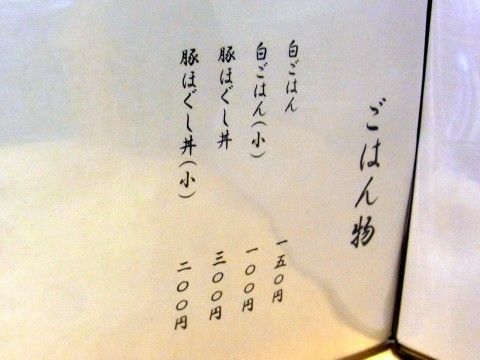 ごはん物
白ごはん 一五〇円
白ごはん(小) 一〇〇円
豚ほぐし丼 三〇〇円
豚ほぐし丼(小) 二〇〇円